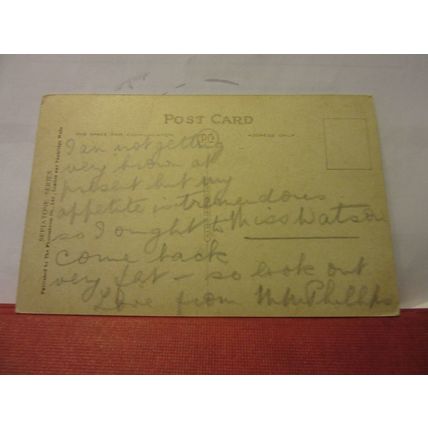 POST CARD
THE SPACE FOR COMMUNICATION
ADDRESS ONLY
SEPIATONE SERIES
Published by The Photochrom Co. Ltd. London and Tunbridge Wells
I am not getting
very brown at
present but my
appetite is tremendous
so I ought to
come back
very fat - so look out
Love from Phillips
Miss Watson